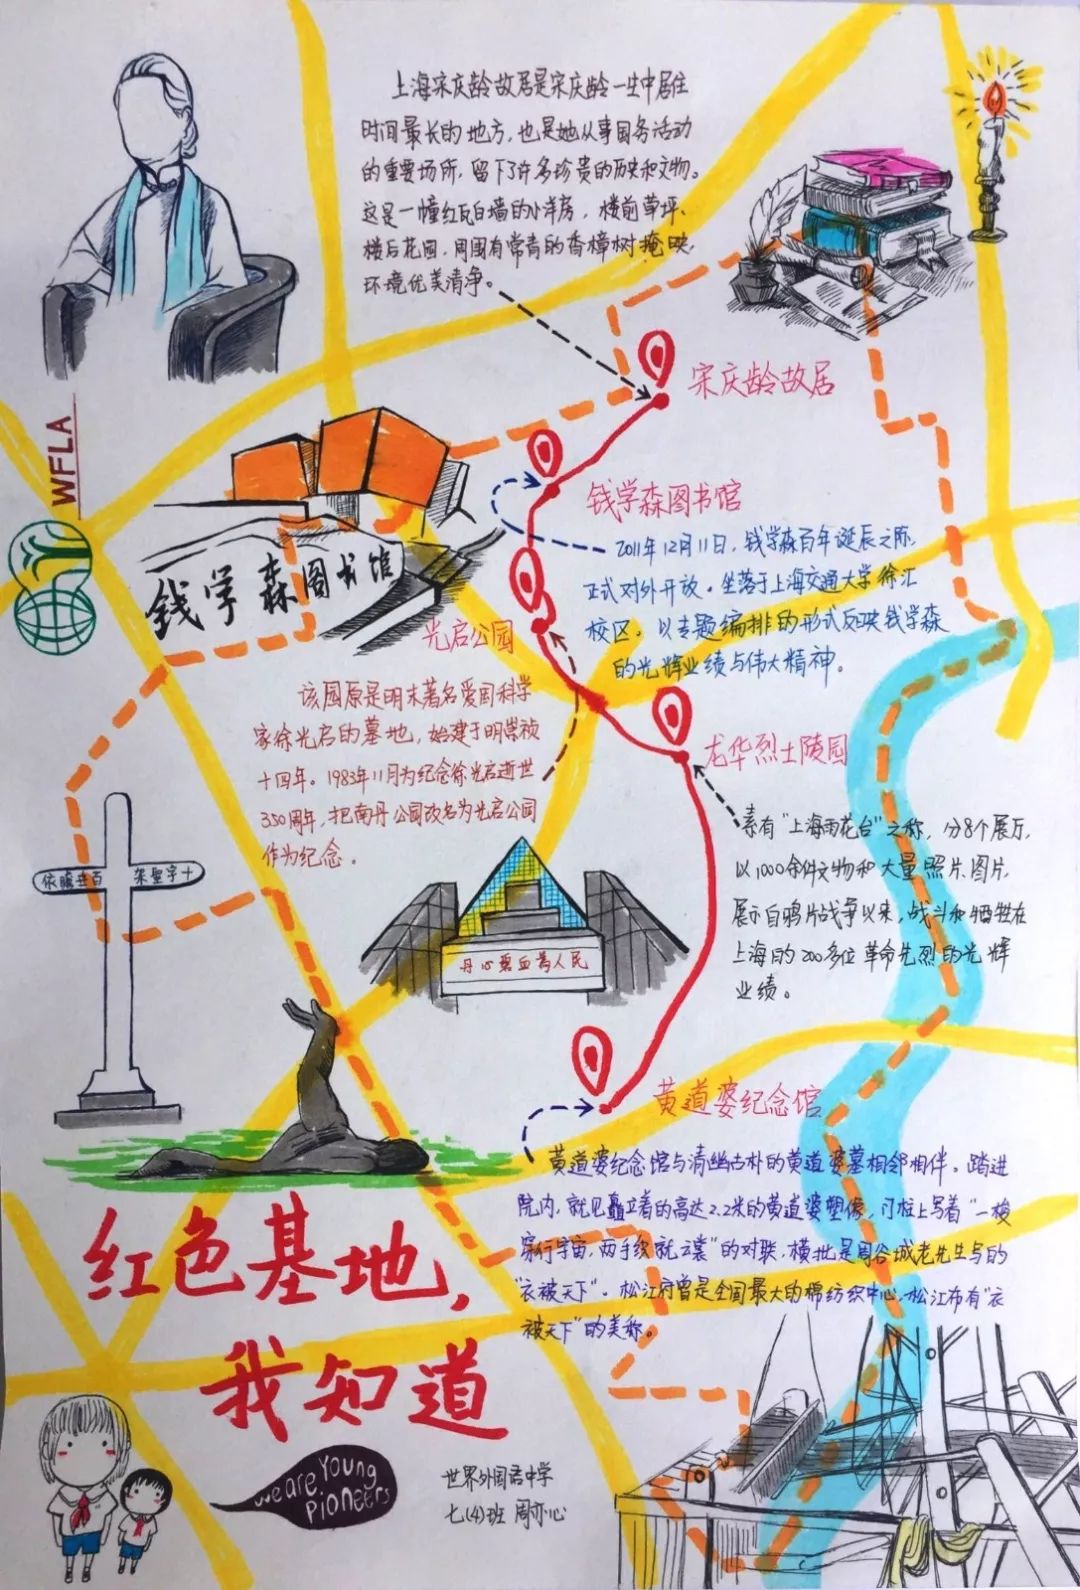 上海宋庆龄故居是宋庆龄一生中居住
时间最长的地方,也是她从事国务活动
的重要场所,留下了许多珍贵的历史和文物。
这是一幢红瓦白墙的小洋房,楼前草坪、
楼后花园,周围有常青的香樟树掩映,
环境优美清净。
宋庆龄故居
WFLA
钱学森图书馆
钱学森图书馆
2011年12月11日,钱学森百年诞辰之际,
正式对外开放。坐落于上海交通大学徐汇
校区。以专题编排的形式反映钱学森
的光辉业绩与伟大精神。
光启公园
该园原是明末著名爱国科学
家徐光启的墓地,始建于明崇祯
十四年。1983年11月为纪念徐光启逝世
350周年,把南丹公园改名为光启公园
作为纪念。
龙华烈士陵园
素有“上海雨花台”之称,分8个展厅,
以1000余件文物和大量照片、图片,
展示自鸦片战争以来,战斗和牺牲在
上海的200多位革命先烈的光辉
业绩。
依瞻幷百 架聖字十
丹心碧血为人民
黄道婆纪念馆
黄道婆纪念馆与清幽古朴的黄道婆墓相邻相伴。踏进
院内,就见矗立着的高达2.2米的黄道婆塑像,门柱上写着“一梭
穿行宇宙,两手织就云裳”的对联,横批是周谷城老先生写的
“衣被天下”。松江府曾是全国最大的棉纺织中心,松江布有“衣
被天下”的美称。
红色基地,
我知道
we are Young
Pioneers
世界外国语中学
七(4)班 周亦心